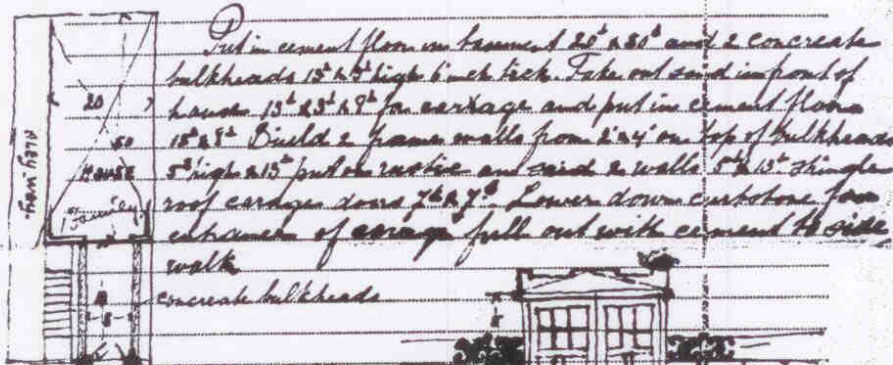 Put in cement floor in basement 20' x 50' and 2 concreate
bulkheads 13' x 3' high 6 inch tick. Take out sand in front of
house 13' x 3' x 8' for and put in cement floor
Build 2 frame walls from 2"x4" on top of bulkheads
5' high x 13' put on rustic and 2 walls 5' x 13' shingle
roof doors 7' x 7' Lower down curbstone for
entrance of full out with cement to side
walk
concreate bulkheads
20
50
HOUSE
1 Family
Alley way
8